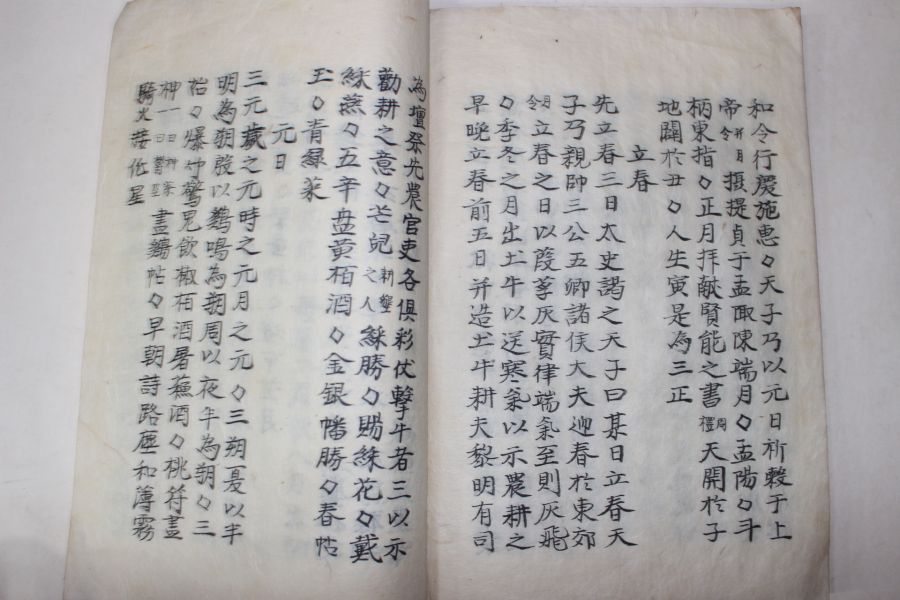 和令行慶施惠◇天子乃以元日祈穀于上
帝月令并摄提貞于孟陬陳端月◇孟陽◇斗
柄東指◇正月拜献賢能之書周禮天開於子
地闢於丑◇人生寅是為三正
立春
先立春三日太史謁之天子曰某日立春天
子乃親帥三公五卿諸侯大夫迎春於東郊
月令立春之日以葭莩灰實律端氣至則灰飛
◇季冬之月出土牛以送寒氣以示農耕之
早晚立春前五日并造土牛耕夫黎明有司
為壇祭先農官吏各俱彩仗擊牛者三以示
勸耕之意◇芒兒耕墾之人綵勝◇賜綵花◇戴
綵燕◇五辛盘黄栢酒◇金銀幡勝◇春帖
玉◇青綠菜
元日
三元歲之元時之元月之元◇三朔夏以平
明為朔殷以鷄鳴為朔周以夜半為朔◇三
始◇爆竹驚鬼飲椒栢酒屠蘇酒◇桃符畫
神一曰神荼一曰欝壘畫鷄帖◇早朝詩路塵和薄霧
騎火莊低星